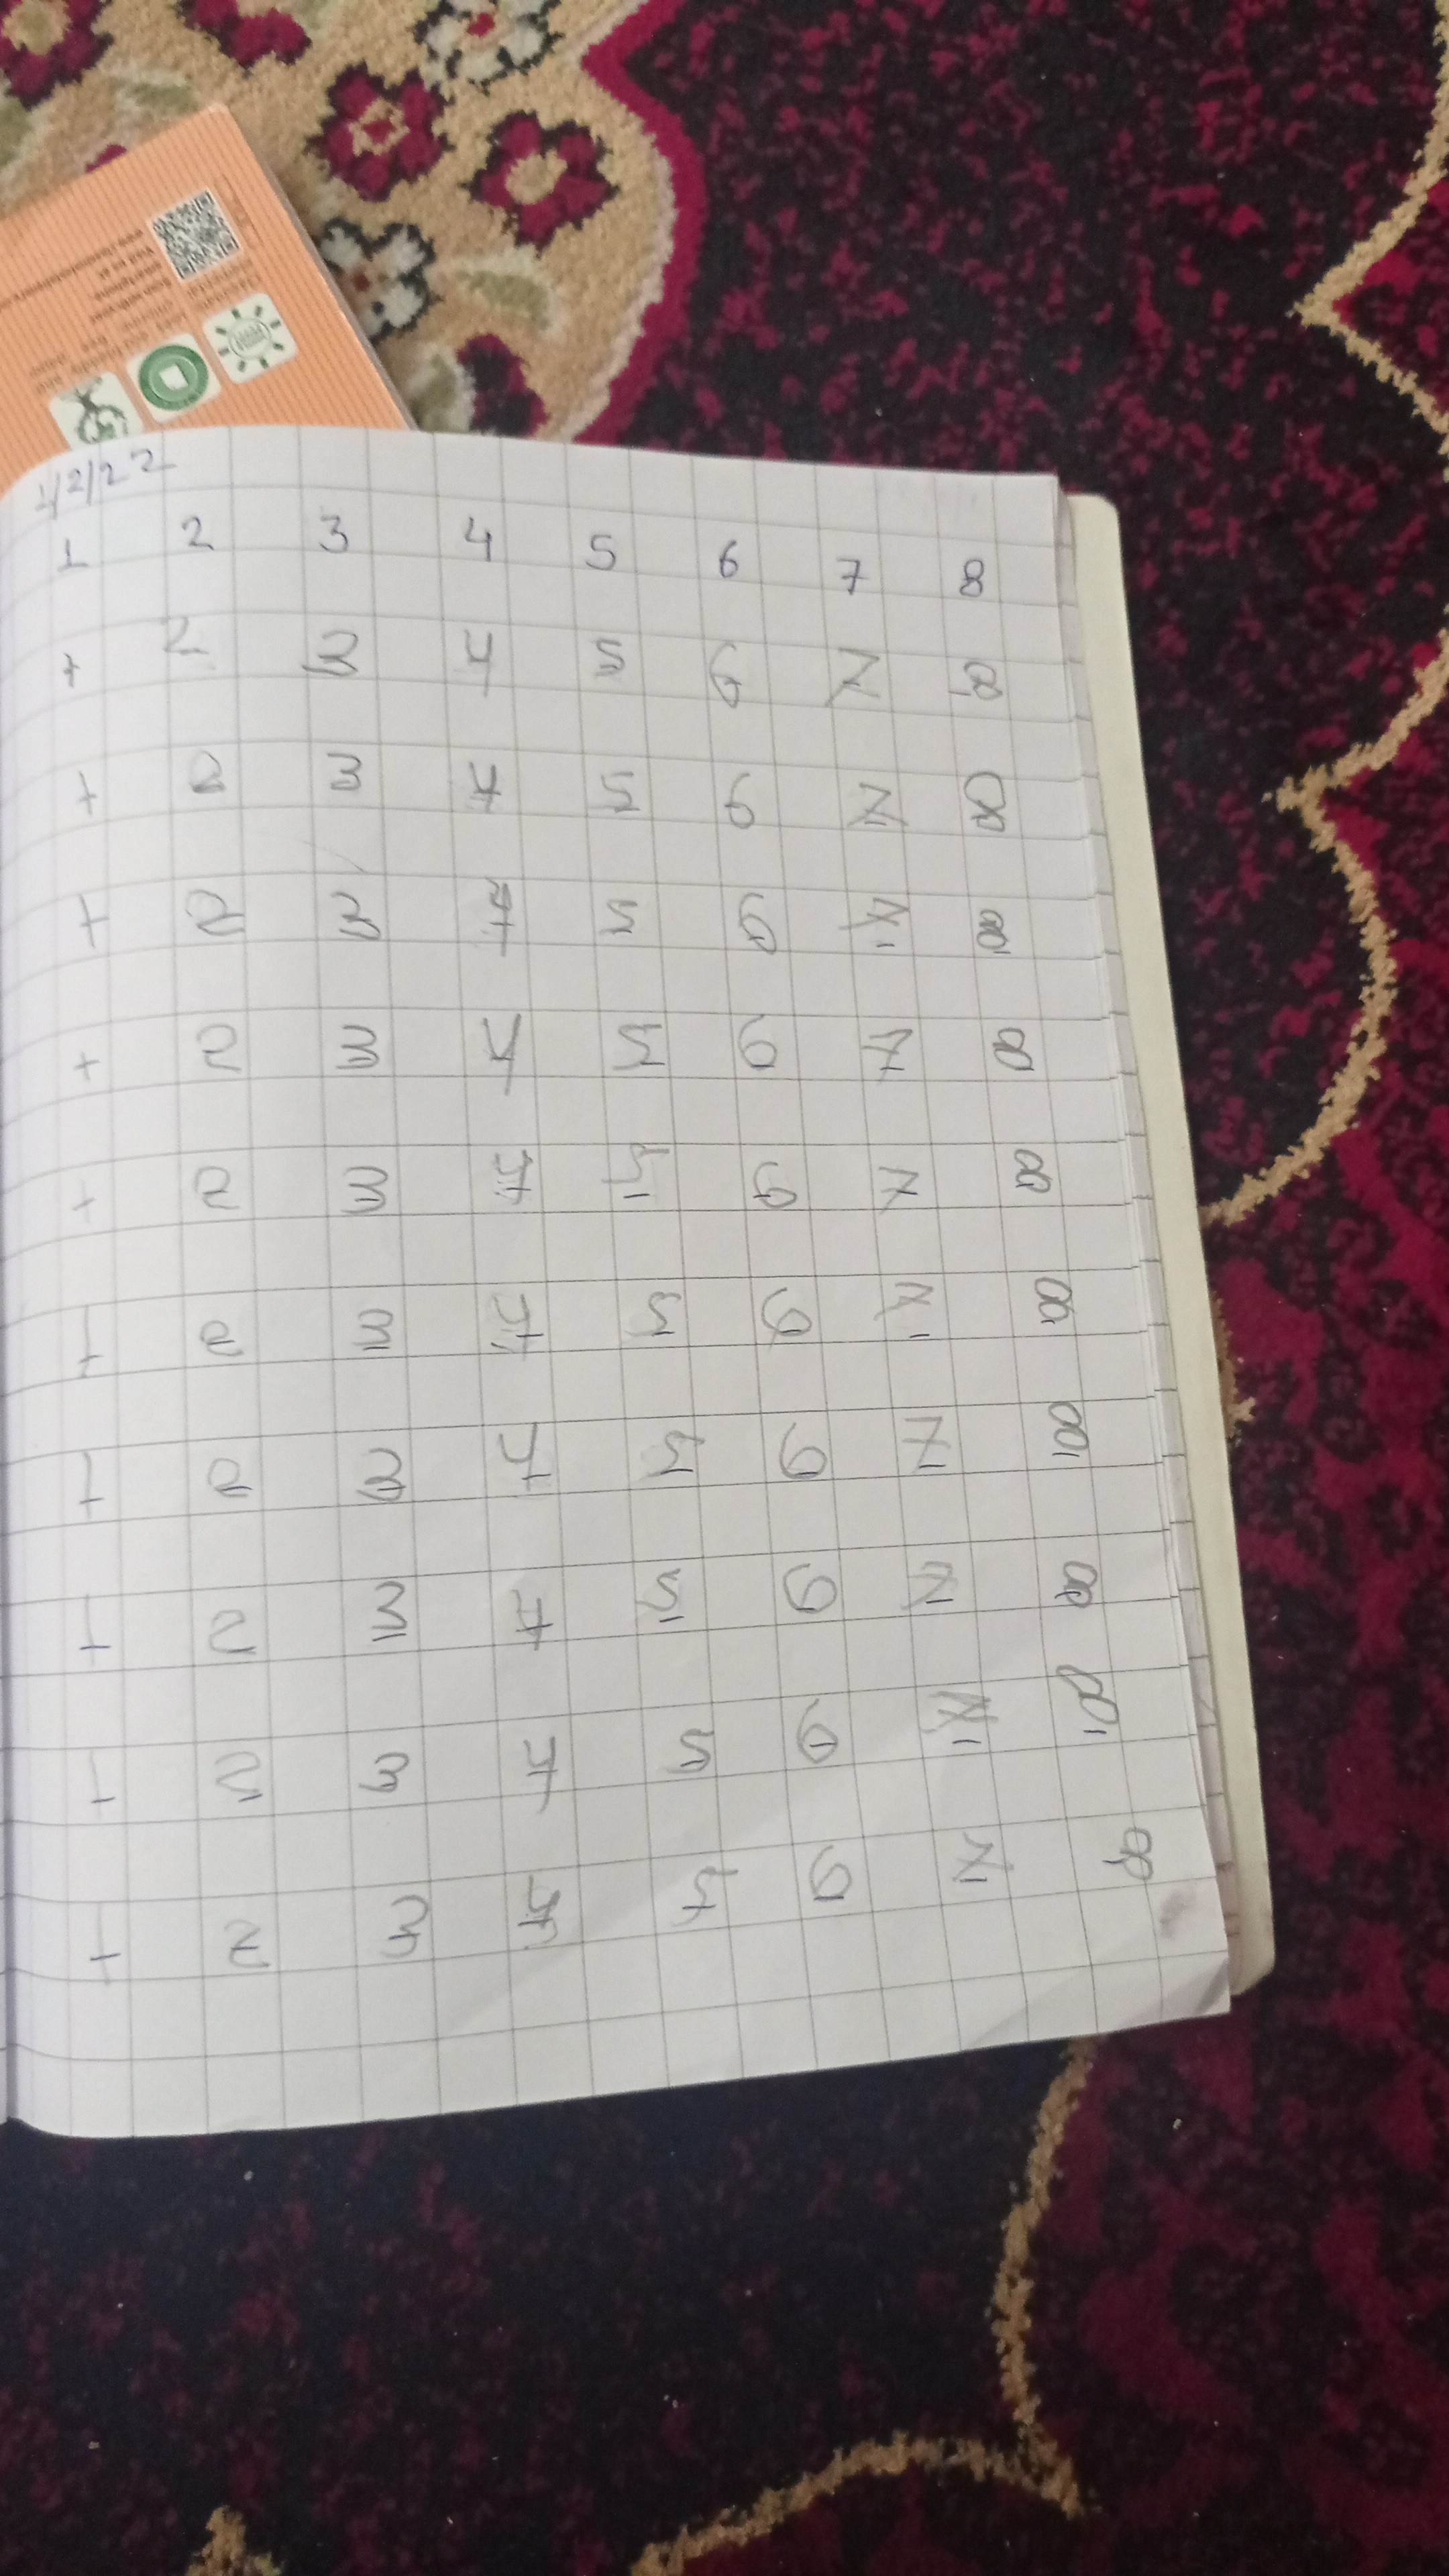 1/2/22
1 2 3 4 5 6 7 8
1 2 3 4 5 6 7 8
1 2 3 4 5 6 7 8
1 2 3 4 5 6 7 8
1 2 3 4 5 6 7 8
1 2 3 4 5 6 7 8
1 2 3 4 5 6 7 8
1 2 3 4 5 6 7 8
1 2 3 4 5 6 7 8
1 2 3 4 5 6 7 8
1 2 3 4 5 6 7 8